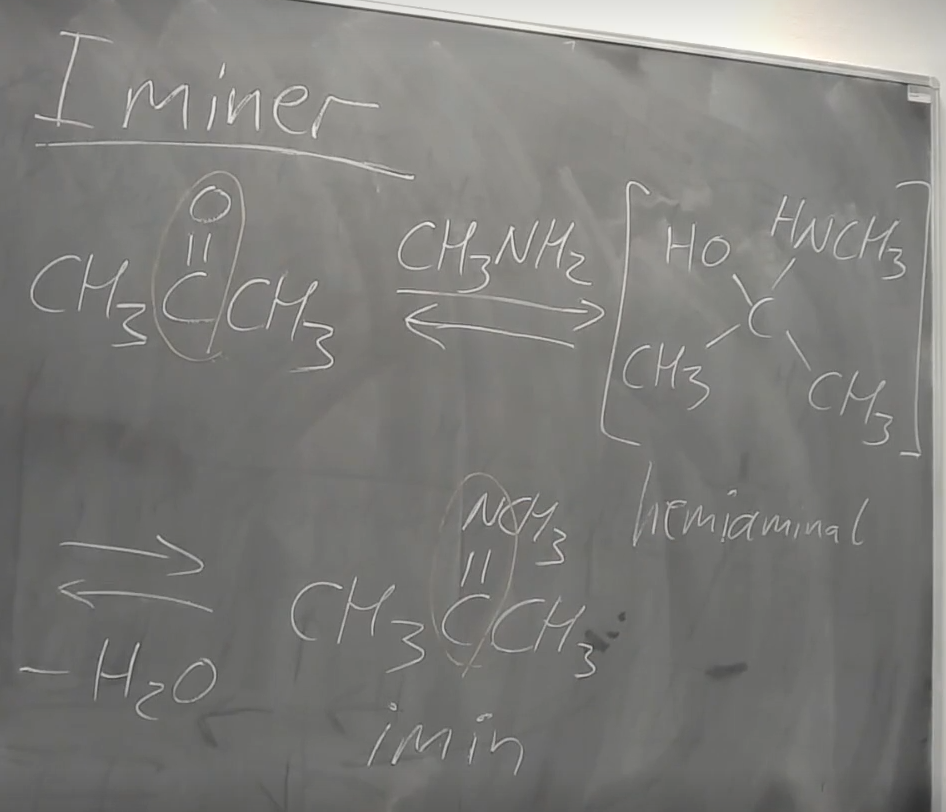 Iminer
O
||
CH₃CCH₃
CH₃NH₂
HO HNCH₃
C
CH₃ CH₃
hemiaminal
−H₂O
NCH₃
||
CH₃CCH₃
imin